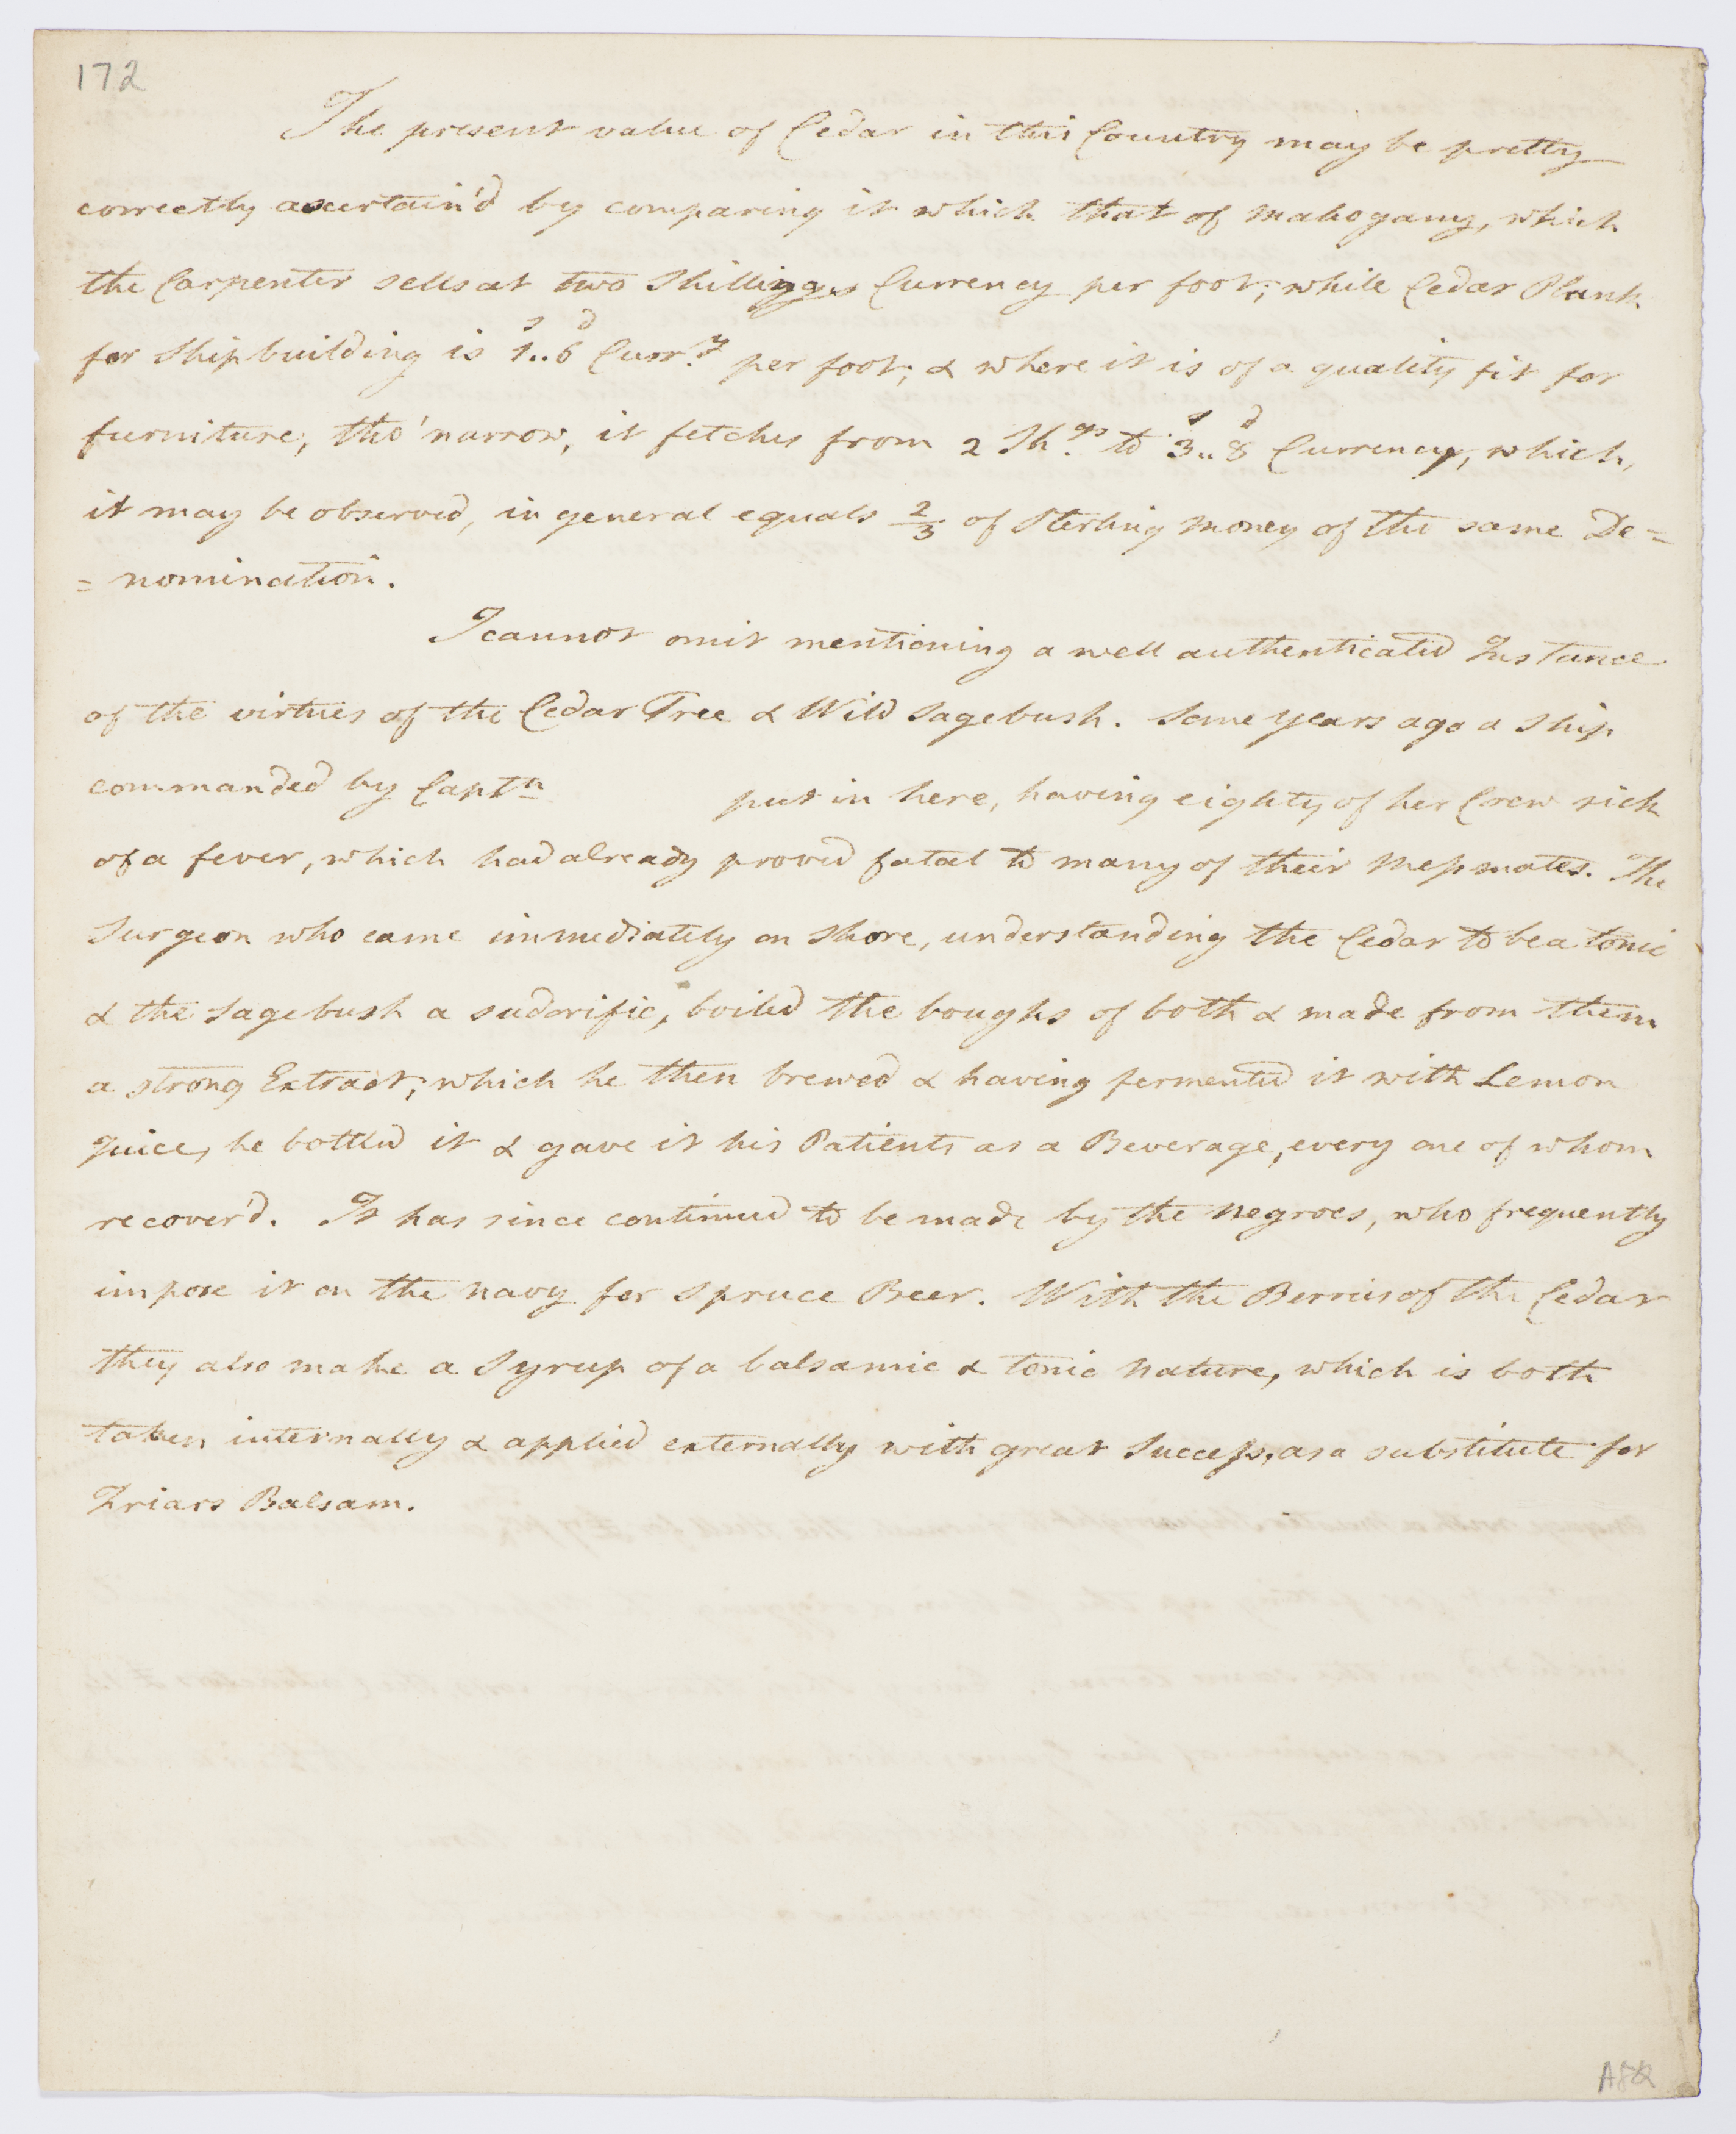 172
The present value of Cedar in this Country may be pretty
correctly ascertain'd by comparing it which that of mahogany, which
the Carpenter sells at two Shillings Currency per foot; while Cedar Plank
for Ship building is 1..6 Curr.y per foot; & where it is of a quality fit for
furniture, tho' narrow, it fetches from 2 Sh.gs to 3..8 Currency, which,
it may be observed, in general equals 2/3 of Sterling money of the same De=
=nomination.
I cannot omit mentioning a well authenticated Instance
of the virtues of the Cedar Tree & Wild Sagebush. Some years ago a Ship
commanded by Captn put in here, having eighty of her Crew sick
of a fever, which had already proved fatal to many of their Messmates. The
Surgeon who came immediately on Shore, understanding the Cedar to be a tonic
& the Sagebush a sudorific, boiled the boughs of both & made from them
a strong Extract; which he then brewed & having fermented it with Lemon
Juice, he bottled it & gave it his Patients as a Beverage, every one of whom
recover'd. It has since continued to be made by the Negroes, who frequently
impose it on the Navy for Spruce Beer. With the Berries of the Cedar
they also make a Syrup of a balsamic & tonic Nature, which is both
taken internally & applied externally with great Success, as a substitute for
Friars Balsam.